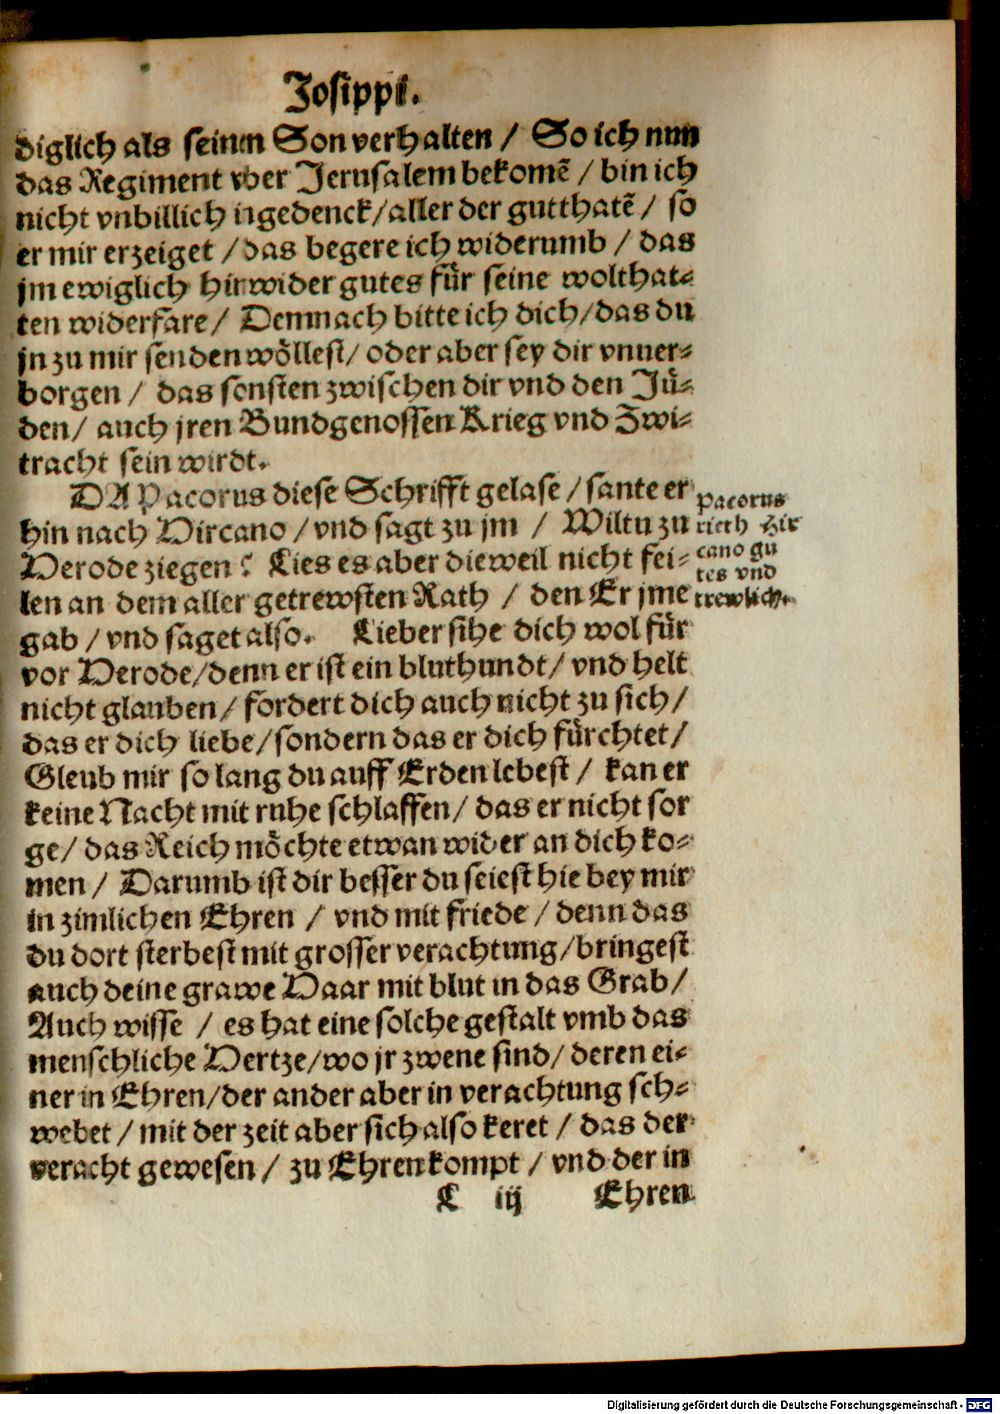 Josippi.
diglich als seinen Son verhalten / So ich nun
das Regiment vber Jerusalem bekomē / bin ich
nicht vnbillich ingedenck/aller der gutthatē / so
er mir erzeiget / das begere ich widerumb / das
jm ewiglich hirwider gutes für seine wolthat-
ten widerfare / Demnach bitte ich dich/das du
jn zu mir senden wöllest/ oder aber sey dir vnuer-
borgen / das sonsten zwischen dir vnd den Jü-
den/ auch jren Bundgenossen Krieg vnd Zwi-
tracht sein wirdt.
DA Pacorus diese Schrifft gelase / sante er
hin nach Hircano / vnd sagt zu jm / Wiltu zu
Herode ziegen? Lies es aber dieweil nicht fei-
len an dem aller getrewsten Rath / den Er jme
gab / vnd saget also. Lieber sihe dich wol für
vor Herode/denn er ist ein bluthundt/ vnd helt
nicht glauben/ fordert dich auch nicht zu sich/
das er dich liebe/sondern das er dich fürchtet/
Gleub mir so lang du auff Erden lebest / kan er
keine Nacht mit ruhe schlaffen/ das er nicht sor
ge/ das Reich möchte etwan wider an dich ko-
men / Darumb ist dir besser du seiest hie bey mir
in zimlichen Ehren / vnd mit friede / denn das
du dort sterbest mit grosser verachtung/bringest
auch deine grawe Haar mit blut in das Grab/
Auch wisse / es hat eine solche gestalt vmb das
menschliche Hertze/wo jr zwene sind/ deren ei-
ner in Ehren/der ander aber in verachtung sch-
webet / mit der zeit aber sich also keret / das der
veracht gewesen / zu Ehren kompt / vnd der in
C iij Ehren
Pacorus
rieth Hir
cano gu
tes vnd
trewlich.
Digitalisierung gefördert durch die Deutsche Forschungsgemeinschaft - DFG